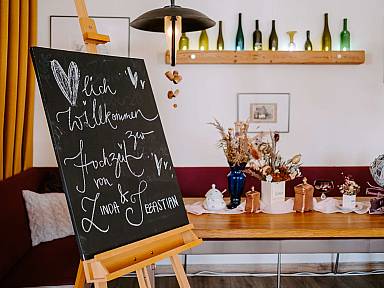 lich
Willkommen
zur
Hochzeit
von
Linda &
Sebastian